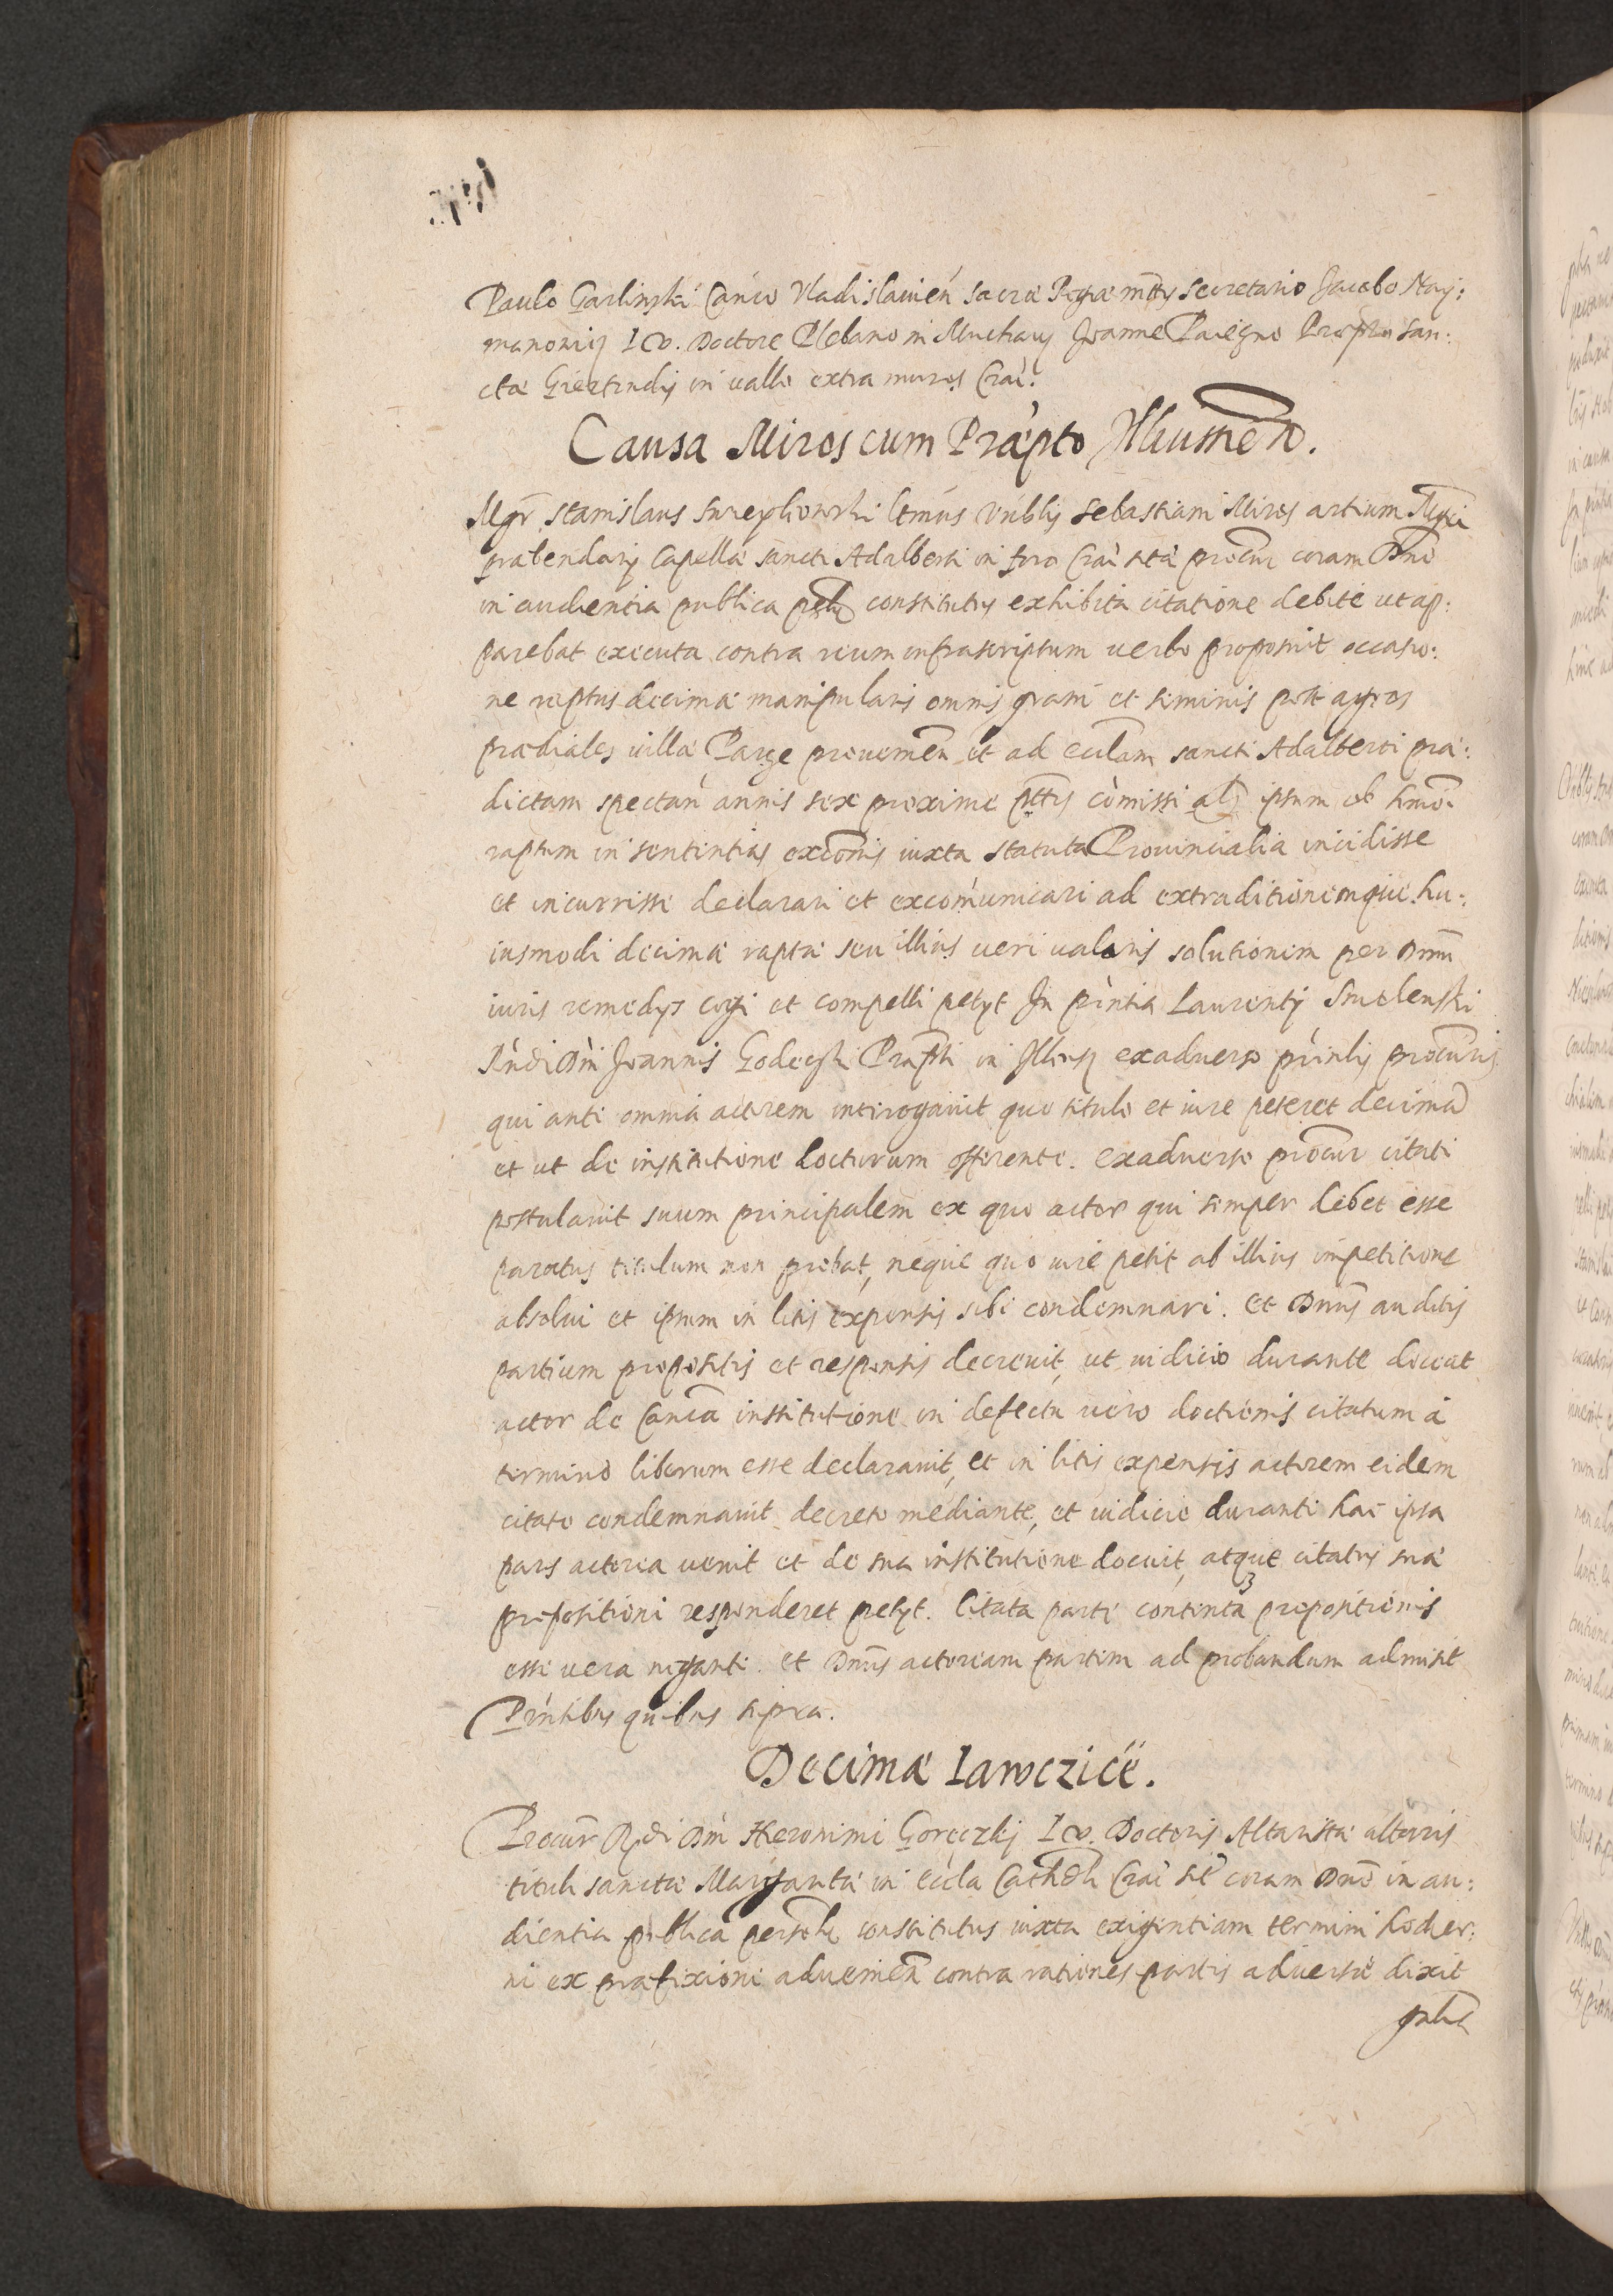 Paulo Garlinski Canco Vladislauien sacræ Regiæ mttis secretario Jacobo Nay:
manowicz I V. Doctore Plebano in Mucharz Joanne Pariegno Præpto San:
ctæ Giertrudis in valle extra muros Crac:
Causa Miros cum Præpto Illkusmen.
Mgr Stanislaus Szczepliowski ltmus Vnblis Sebastiani Miros artium Mgri
præbendarij Capellæ sancti Adalberti in foro Crac sitæ procur coram Dno
in audientia publica psolr constitutus exhibita citatione debite ut ap:
parebat executa contra reum infrascriptum verbo proposuit occasio:
ne raptus decimæ manipularis omnis grani et seminis post agros
prædiales villæ Parge prouenien et ad ecclam sancti Adalberti præ:
dictam spectan annis sex proxime pttis comissi als ipsum ob hmoi
raptum in sententias excomis iuxta statuta Prouincialia incidisse
et incurrisse declarari et excomunicari ad extraditionemque hu:
iusmodi decimæ raptæ seu illius veri valoris solutionem per Dnum
iuris remedys cogi et compelli petyt In pntia Laurentij Smolenski
Rndi Dni Joannis Godecski Præpti in Ilkusz exaduerso pnlis procuris
qui ante omnia actorem interogauit quo titulo et iure peteret decimã
et ut de institutione docturum offerente. exaduerso procur citati
postulauit suum principalem ex quo actor qui semper debet esse
paratus titulum non probat, neque quo iure petit ab illius impetitione
absolui et ipsum in litis expensis sibi condemnari. et Dnus auditis
partium propositis et responsis decreuit, ut iudicio durante doceat
actor de Canca institutione in defectu vero doctionis citatum à
termino liberum esse declarauit, et in litis expensis actorem eidem
citato condemnauit decreto mediante, et iudicio duranti hac ipsa
pars actorea venit et de sua institutione docuit, atque citatus suæ
propositioni responderet petyt. Citata parte contenta propositionis
esse vera negante. et Dnus actoream partem ad probandum admisit
Pntibus quibus supra.
Decimæ Iawczice.
Procur Rdi Dni Hieronimi Goręczkj I V. Doctoris Altaristæ altaris
tituli sanctæ Margaritæ in eccla Cathedli Crac sit coram Dno in au:
dientia publica personlr constitutus iuxta exigentiam termini hodier:
ni ex præfixione aduenien contra rationes partis aduersæ dixit